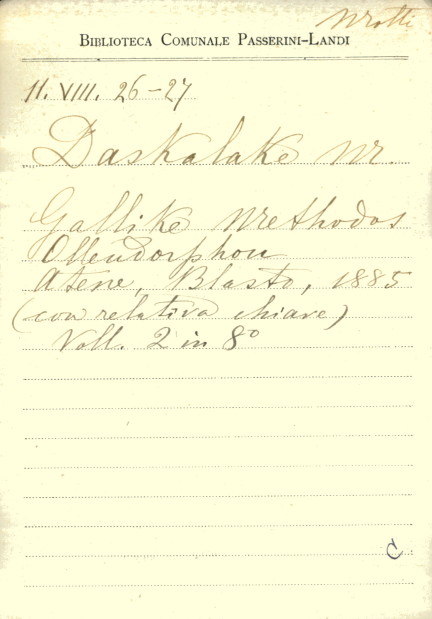 Motti
BIBLIOTECA COMUNALE PASSERINI-LANDI
11. VIII. 26-27
Daskalake M.
Gallike Methodos
Ollendorphou
Atene, Blasto, 1885
(con relativa chiave)
Voll. 2 in 8º
C